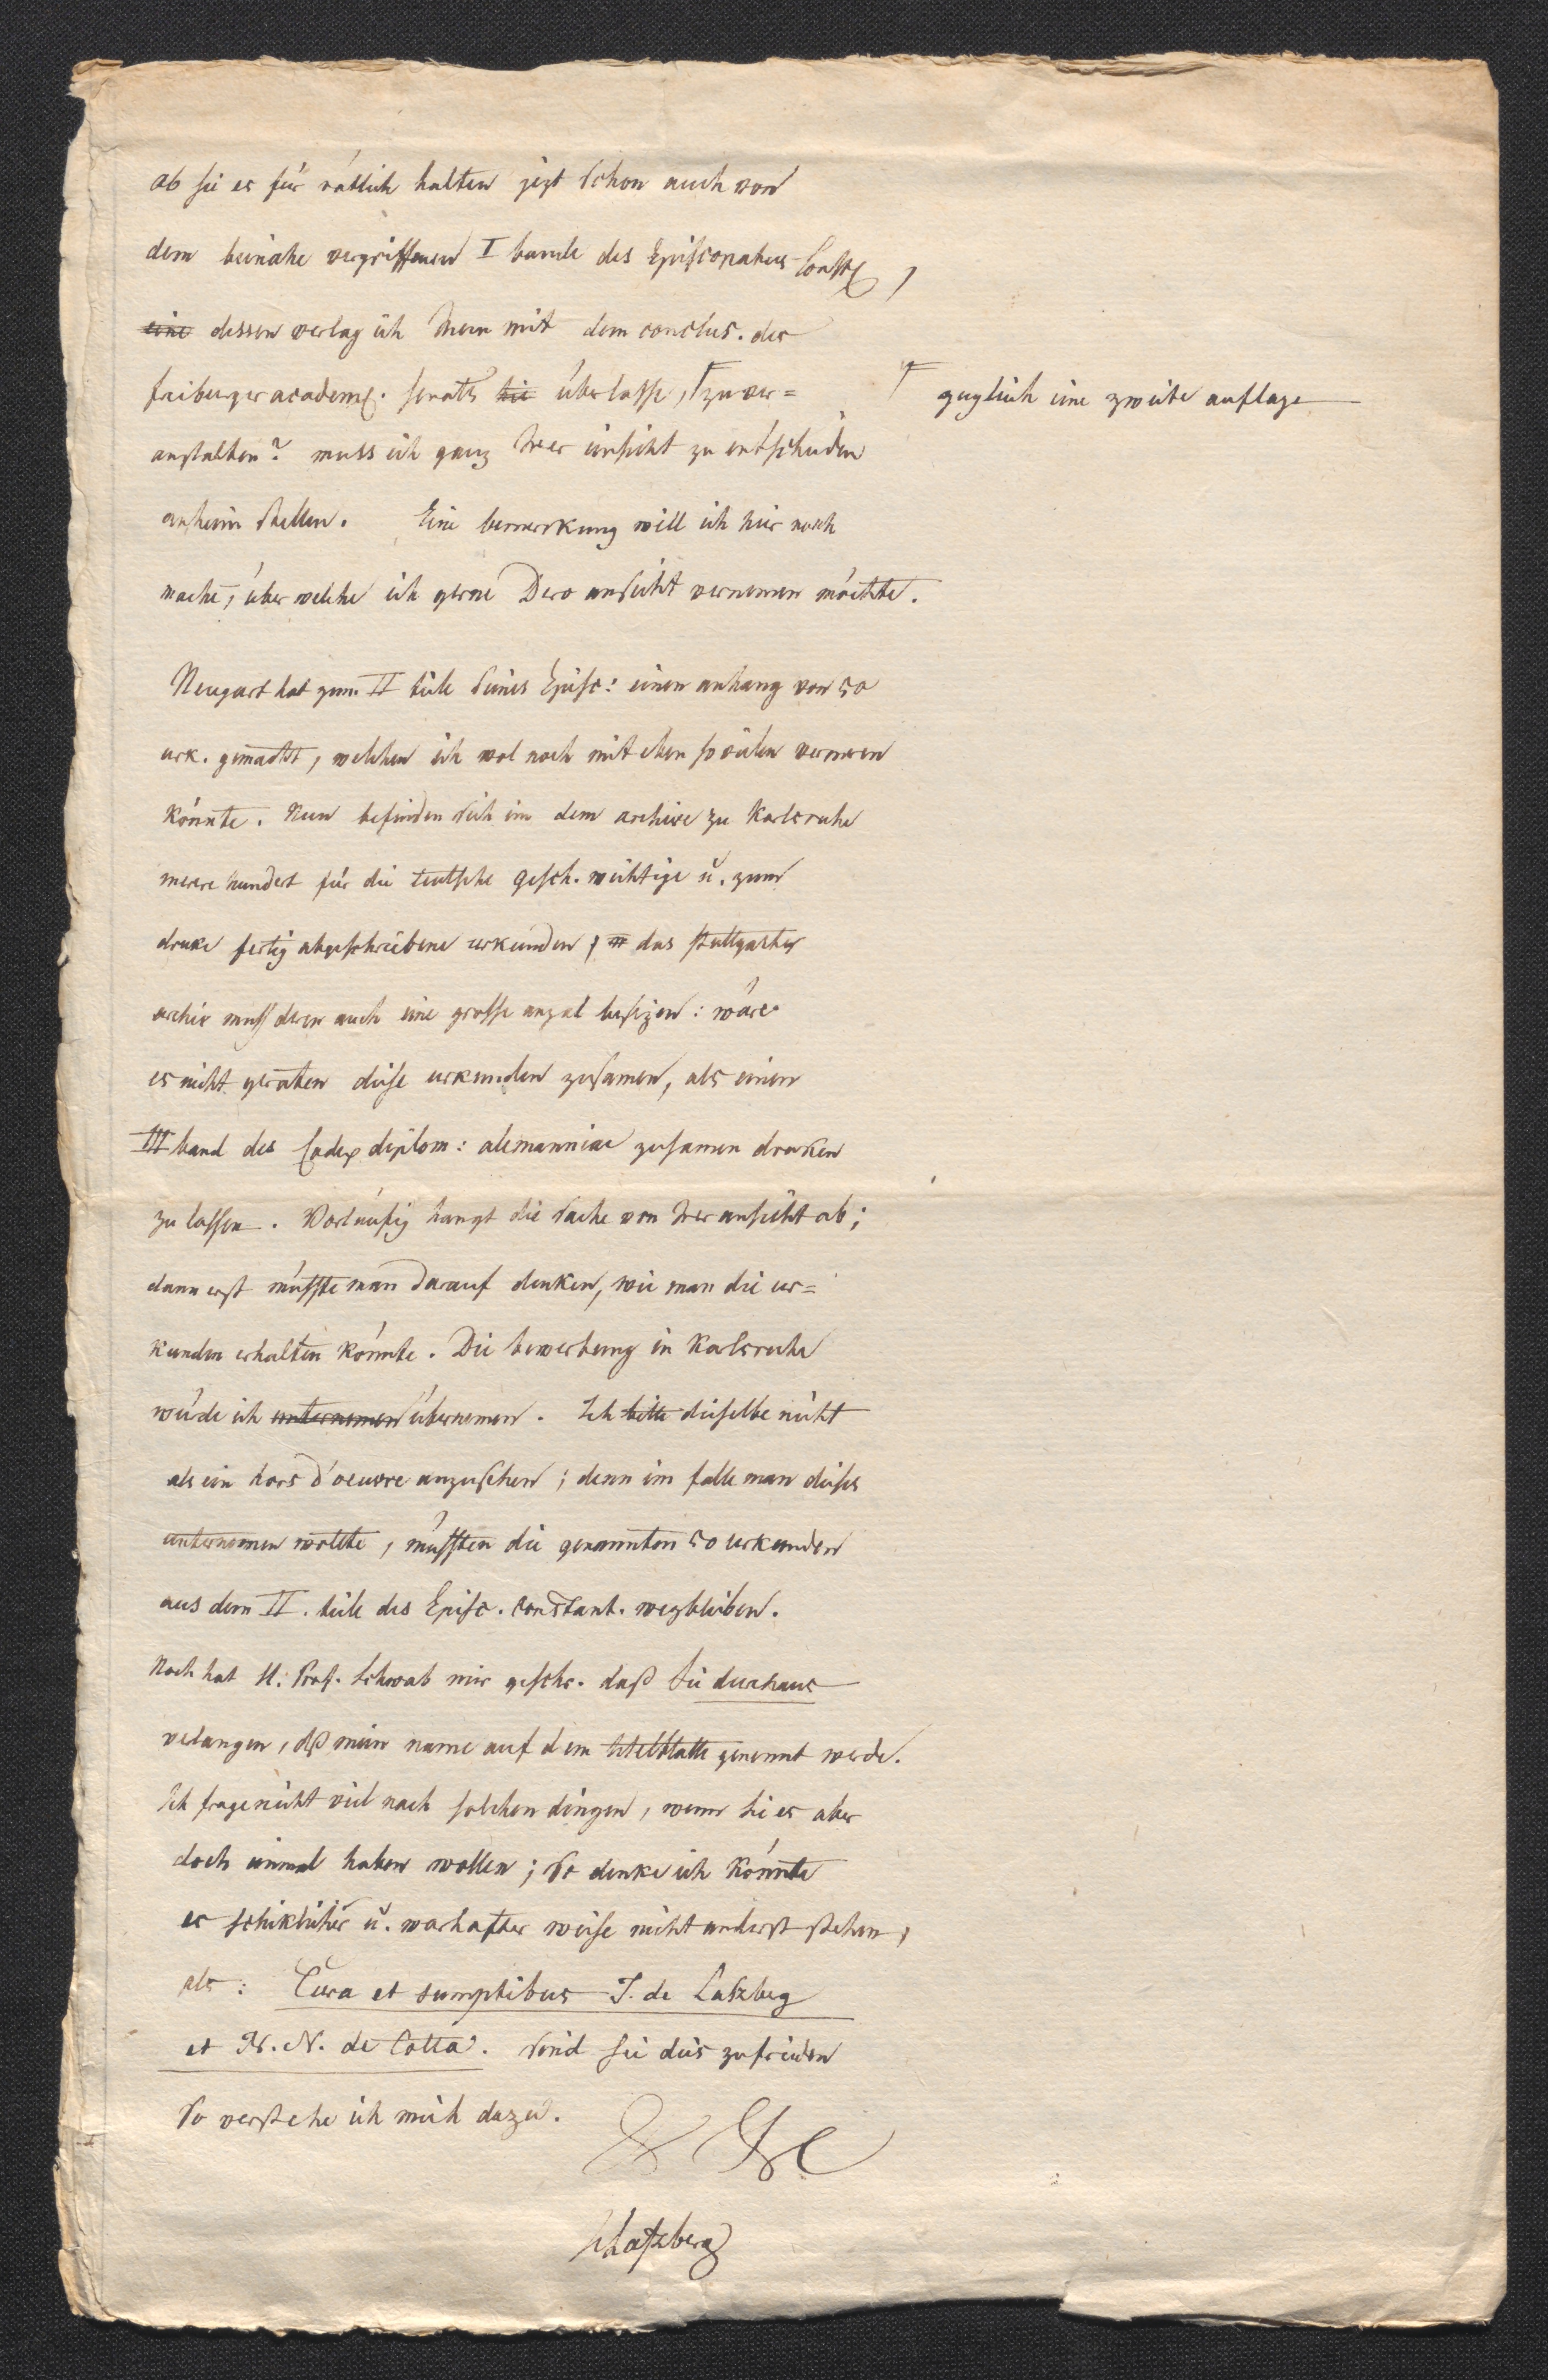 ob sie es für rätlich halten jezt schon auch von
dem beinahe vergriffenen I bande des Episcopatus Const.,
eine dessen verlag ich Inen mit dem conclus. des
freiburger academ. senats hie überlasse, ⌈ zu ver=
⌈ zugleich eine zweite auflage
anstalten? muss ich ganz Irer einsicht zu entscheiden
anheim stellen. Eine bemerkung will ich hier noch
mache̅, über welche ich gerne Dero ansicht vernemen möchte.
Neugart hat zum II teile seines Episc: einen anhang von 50
urk. gemacht, welchen ich wol noch mit eben so vielen vermeren
könnte. Nun befinden sich in dem archive zu Karlsruhe
merere hundert für die teutsche gesch. wichtige u. zum
druke fertig abgeschriebene urkunden, das stuttgarter
archiv muss deren auch eine grosse anzal besizen: wäre
es nicht geraten diese urkunden zusamen, als einen
III band des Codex diplom: alemanniae zusamen druken
zu lassen. Vorläufig hangt die sache von Irer ansicht ab;
dann erst müsste man darauf denken, wie man die ur=
kunden erhalten könnte. Die bewerbung in Karlsruhe
würde ich unternemen übernemen. Ich bitte dieselbe nicht
als ein hors d'oeuvre anzusehen; denn im falle man dieses
unternemen wollte, müssten die genannten 50 urkunden
aus dem II. teile des Episc. constant. wegbleiben.
Noch hat H. Prof. Schwab mir geschr. daß Sie durchaus
verlangen, dß mein name auf dem titelblatte genennt werde.
Ich frage nicht viel nach solchen dingen, wenn Sie es aber
doch einmal haben wollen; so denke ich könnte
es schiklicher u. warhafter weise nicht anderst stehen,
als: Cura et sumptibus J. de Laszberg
et N. N. de Cotta. sind sie dies zufrieden
so verstehe ich mich dazu.
JvLaßberg